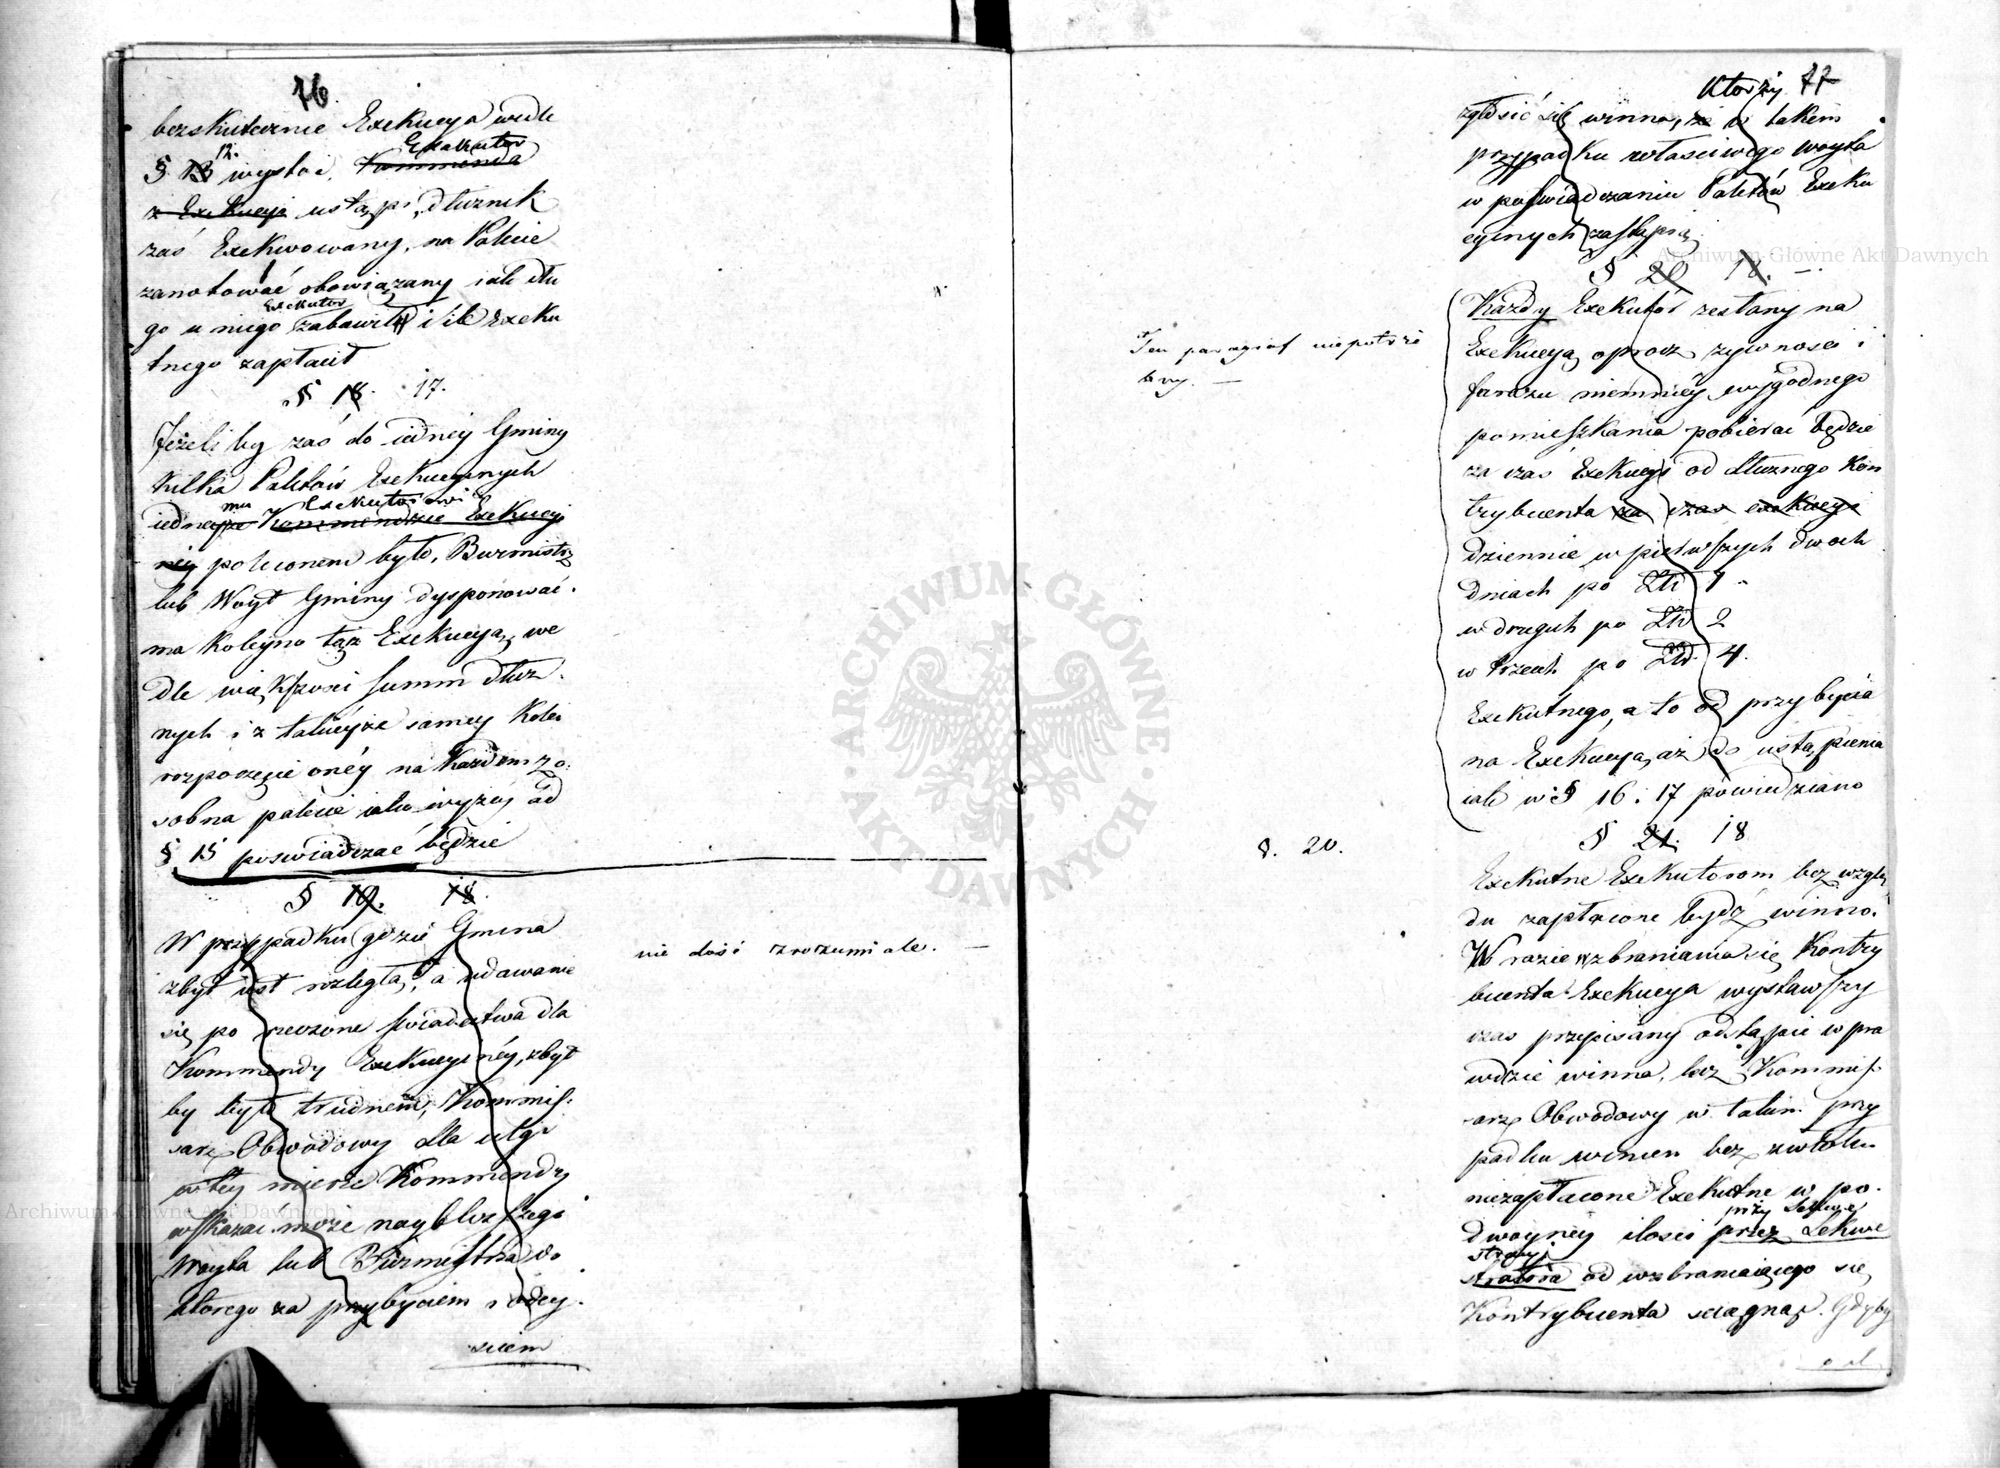 76
bezskutecznie Exekucya wedle
12. Exekutor
§ 13 wystoi, Kommenda
z Exekucyi ustąpi, dłużnik
zaś Exekwowany, na Palecie
zanotować obowiązany iak dłu
Exekutor
go u niego zabawił i ile exeku
tnego zapłacił
§ 18. 17.
Jeżeliby zaś do iedney Gminy
kilka Paletów Exekucyinych
mu Exekutorowi
iednej Kommendzie Exekucyi
ney poleconem było, Burmistrz
lub Woyt Gminy dysponować
ma koleyno tąż Exekucyą, we
dle większości summ dłuż
nych i z takieyże samey kolei
rozpoczęcie onéy na każdem zo:
sobna palecie iako wyżey ad
§ 15 poswiadczać będzie
§ 19. 18.
W przypadku gdzie Gmina
zbyt iest rozległa, a udawanie
się po rzeczone świadectwa dla
Kommendy Exekucyinéy, zbyt
by było trudnem, Kommis:
sarz Obwodowy dla ulgi
w tey mierze Kommendy
wskazać może naybliższego
Woyta lub Burmistrza do
którego za przybyciem i odey:
sciem
nie dość zrozumiałe. —
Którzy 77
zgłosić się winna, że w takim
przypadku właściwego woyta
w poświadczaniu Paletów Exeku
cyinych zastąpią
§ 20 18. —
Każdy Exekutor zesłany na
Exekucyą oprocz żywności i
farażu niemniéy wygodnego
pomieszkania pobierać będzie
za czas Exekucyi od dłużnego kon
trybuenta za czas exekucyi
dziennie w pierwszych dwóch
dniach po Złł 1
w drugich po Złł 2
w trzech po Złł. 4.
Exekutnego, a to od przybycia
na Exekucyą, aż do ustąpienia
iak w § 16 i 17 powiedziano
Ten paragraf niepotrze
bny. —
§ 21. 18
§. 20.
Exekutne Exekutorom bez wzglę
du zapłacone bydź winno.
W razie wzbraniania się Kontry
buenta Exekucya wystawszy
czas przepisany odstąpić w pra
wdzie winna, lecz Kommis:
sarz Obwodowy w takim przy
padku winien bez zwłoki
niezapłacone Exekutne w po:
przy Sekwe
dwoyney ilości przez Sekwe
stracyi
stratora od wzbraniaiącego się
Kontrybuenta sciągnąć. Gdyby
od
Archiwum Główne Akt Dawnych
Archiwum Główne Akt Dawnych
ARCHIWUM GŁÓWNE AKT DAWNYCH